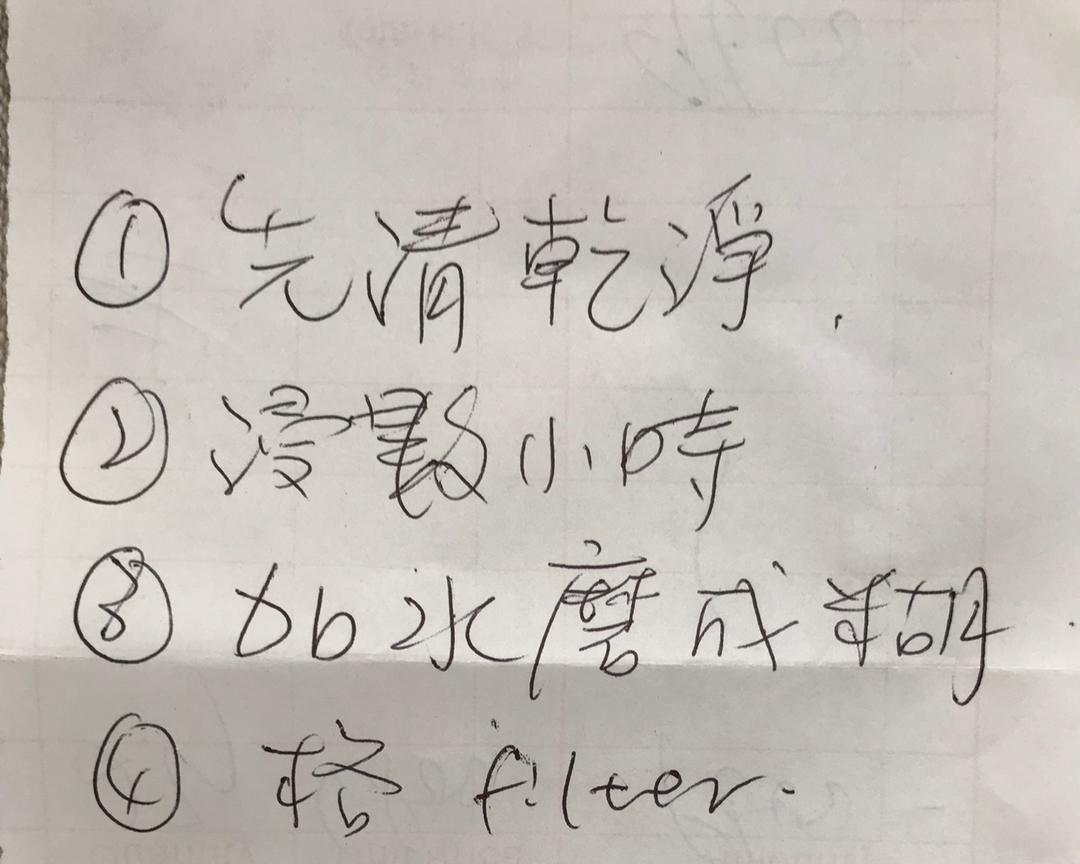 ① 先清乾淨.
② 浸數小時
③ 加水磨成糊.
④ 格 filter.